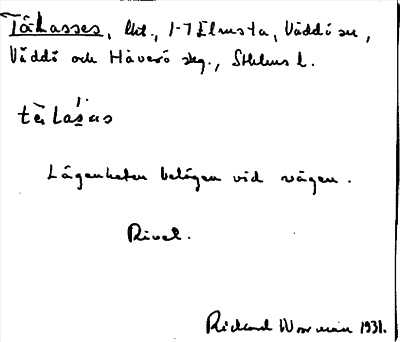 Tåkasses, lht., 1-7 Elmsta, Väddö sn,
Väddö och Häverö skg., Sthlms l.
Lägenheten belägen vid vägen.
Rivet.
Rickard Wornmin 1931.